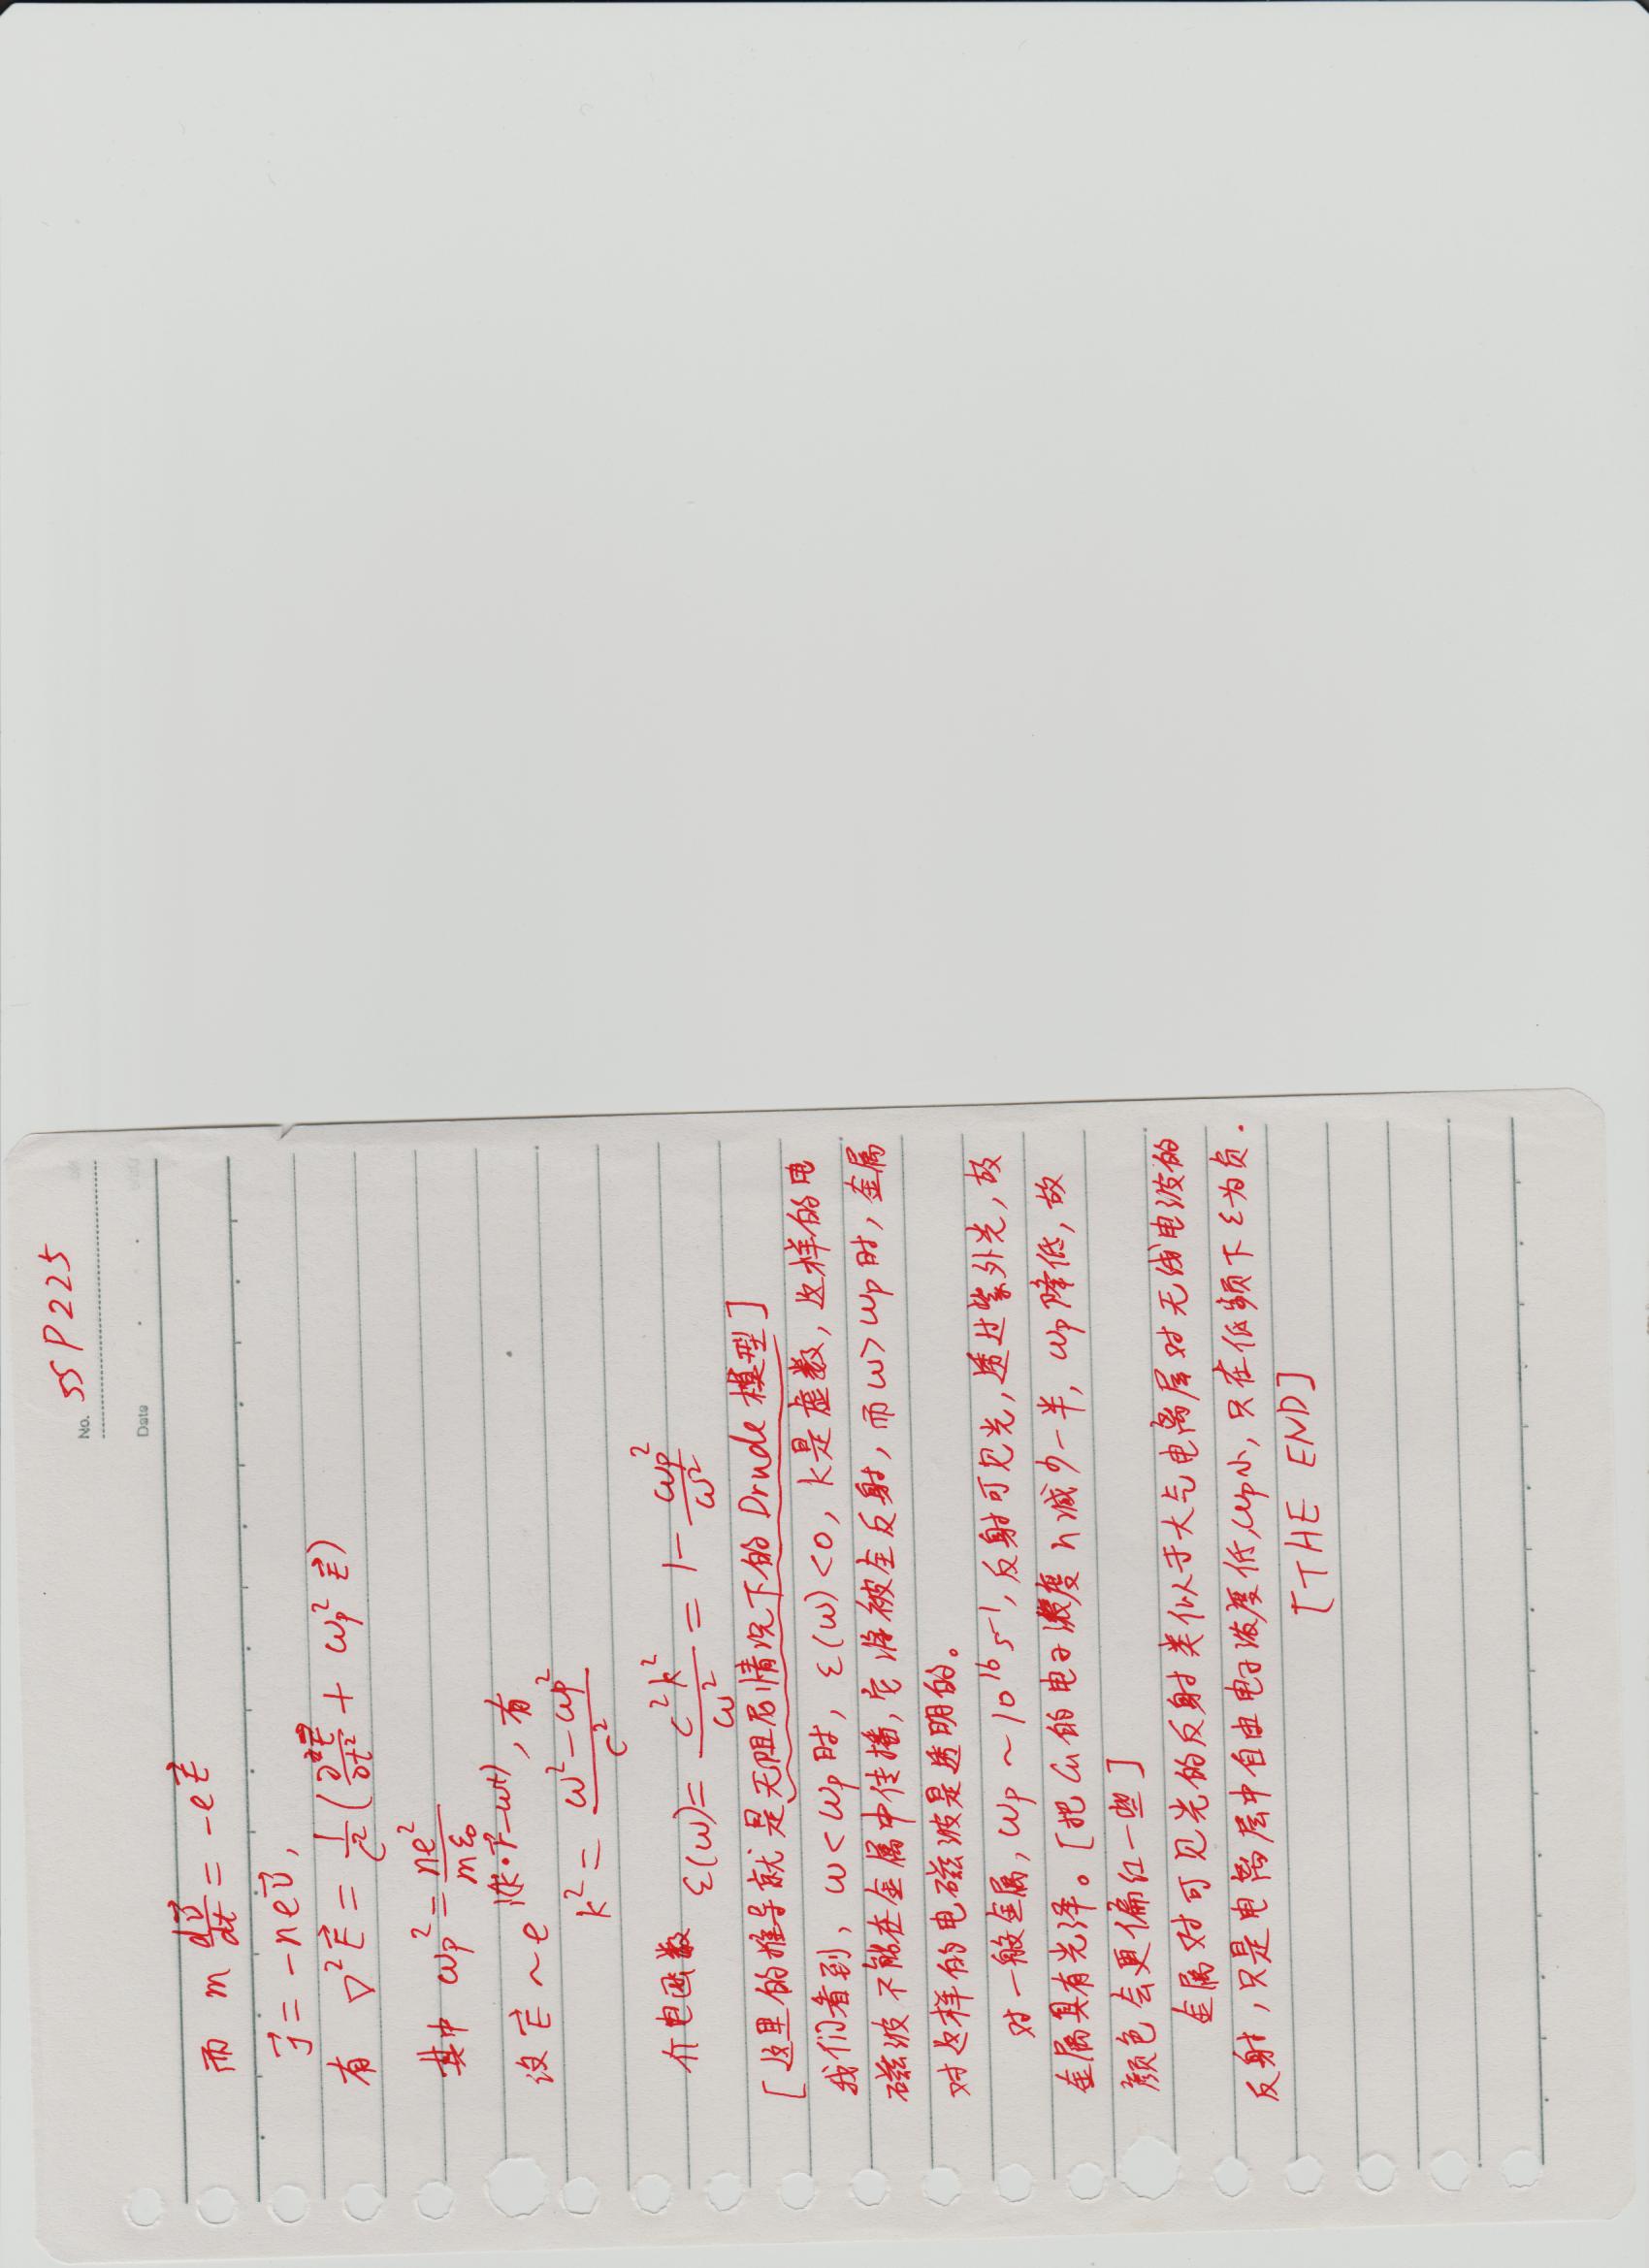 No. SSP225
Date
而 m dv⃗/dt = -eE⃗
j⃗ = -nev⃗,
有 ∇²E⃗ = 1/c² (∂²E⃗/∂t² + ωp² E⃗)
其中 ωp² = ne²/mε₀
设 E⃗ ~ e^i(k⃗·r⃗-ωt), 有
k² = (ω²-ωp²)/c²
介电函数 ε(ω) = c²k²/ω² = 1 - ωp²/ω²
[这里的推导就是无阻尼情况下的Drude模型]
我们看到, ω<ωp时, ε(ω)<0, k是虚数, 这样的电
磁波不能在金属中传播, 它将被全反射, 而ω>ωp时, 金属
对这样的电磁波是透明的。
对一般金属, ωp ~ 10¹⁶ s⁻¹, 反射可见光, 透过紫外光, 故
金属具有光泽。[把Cu的电子浓度n减少一半, ωp降低, 故
颜色会更偏红一些]
金属对可见光的反射类似于大气电离层对无线电波的
反射, 只是电离层中自由电子浓度低, ωp小, 只在低频下ε为负.
[THE END]